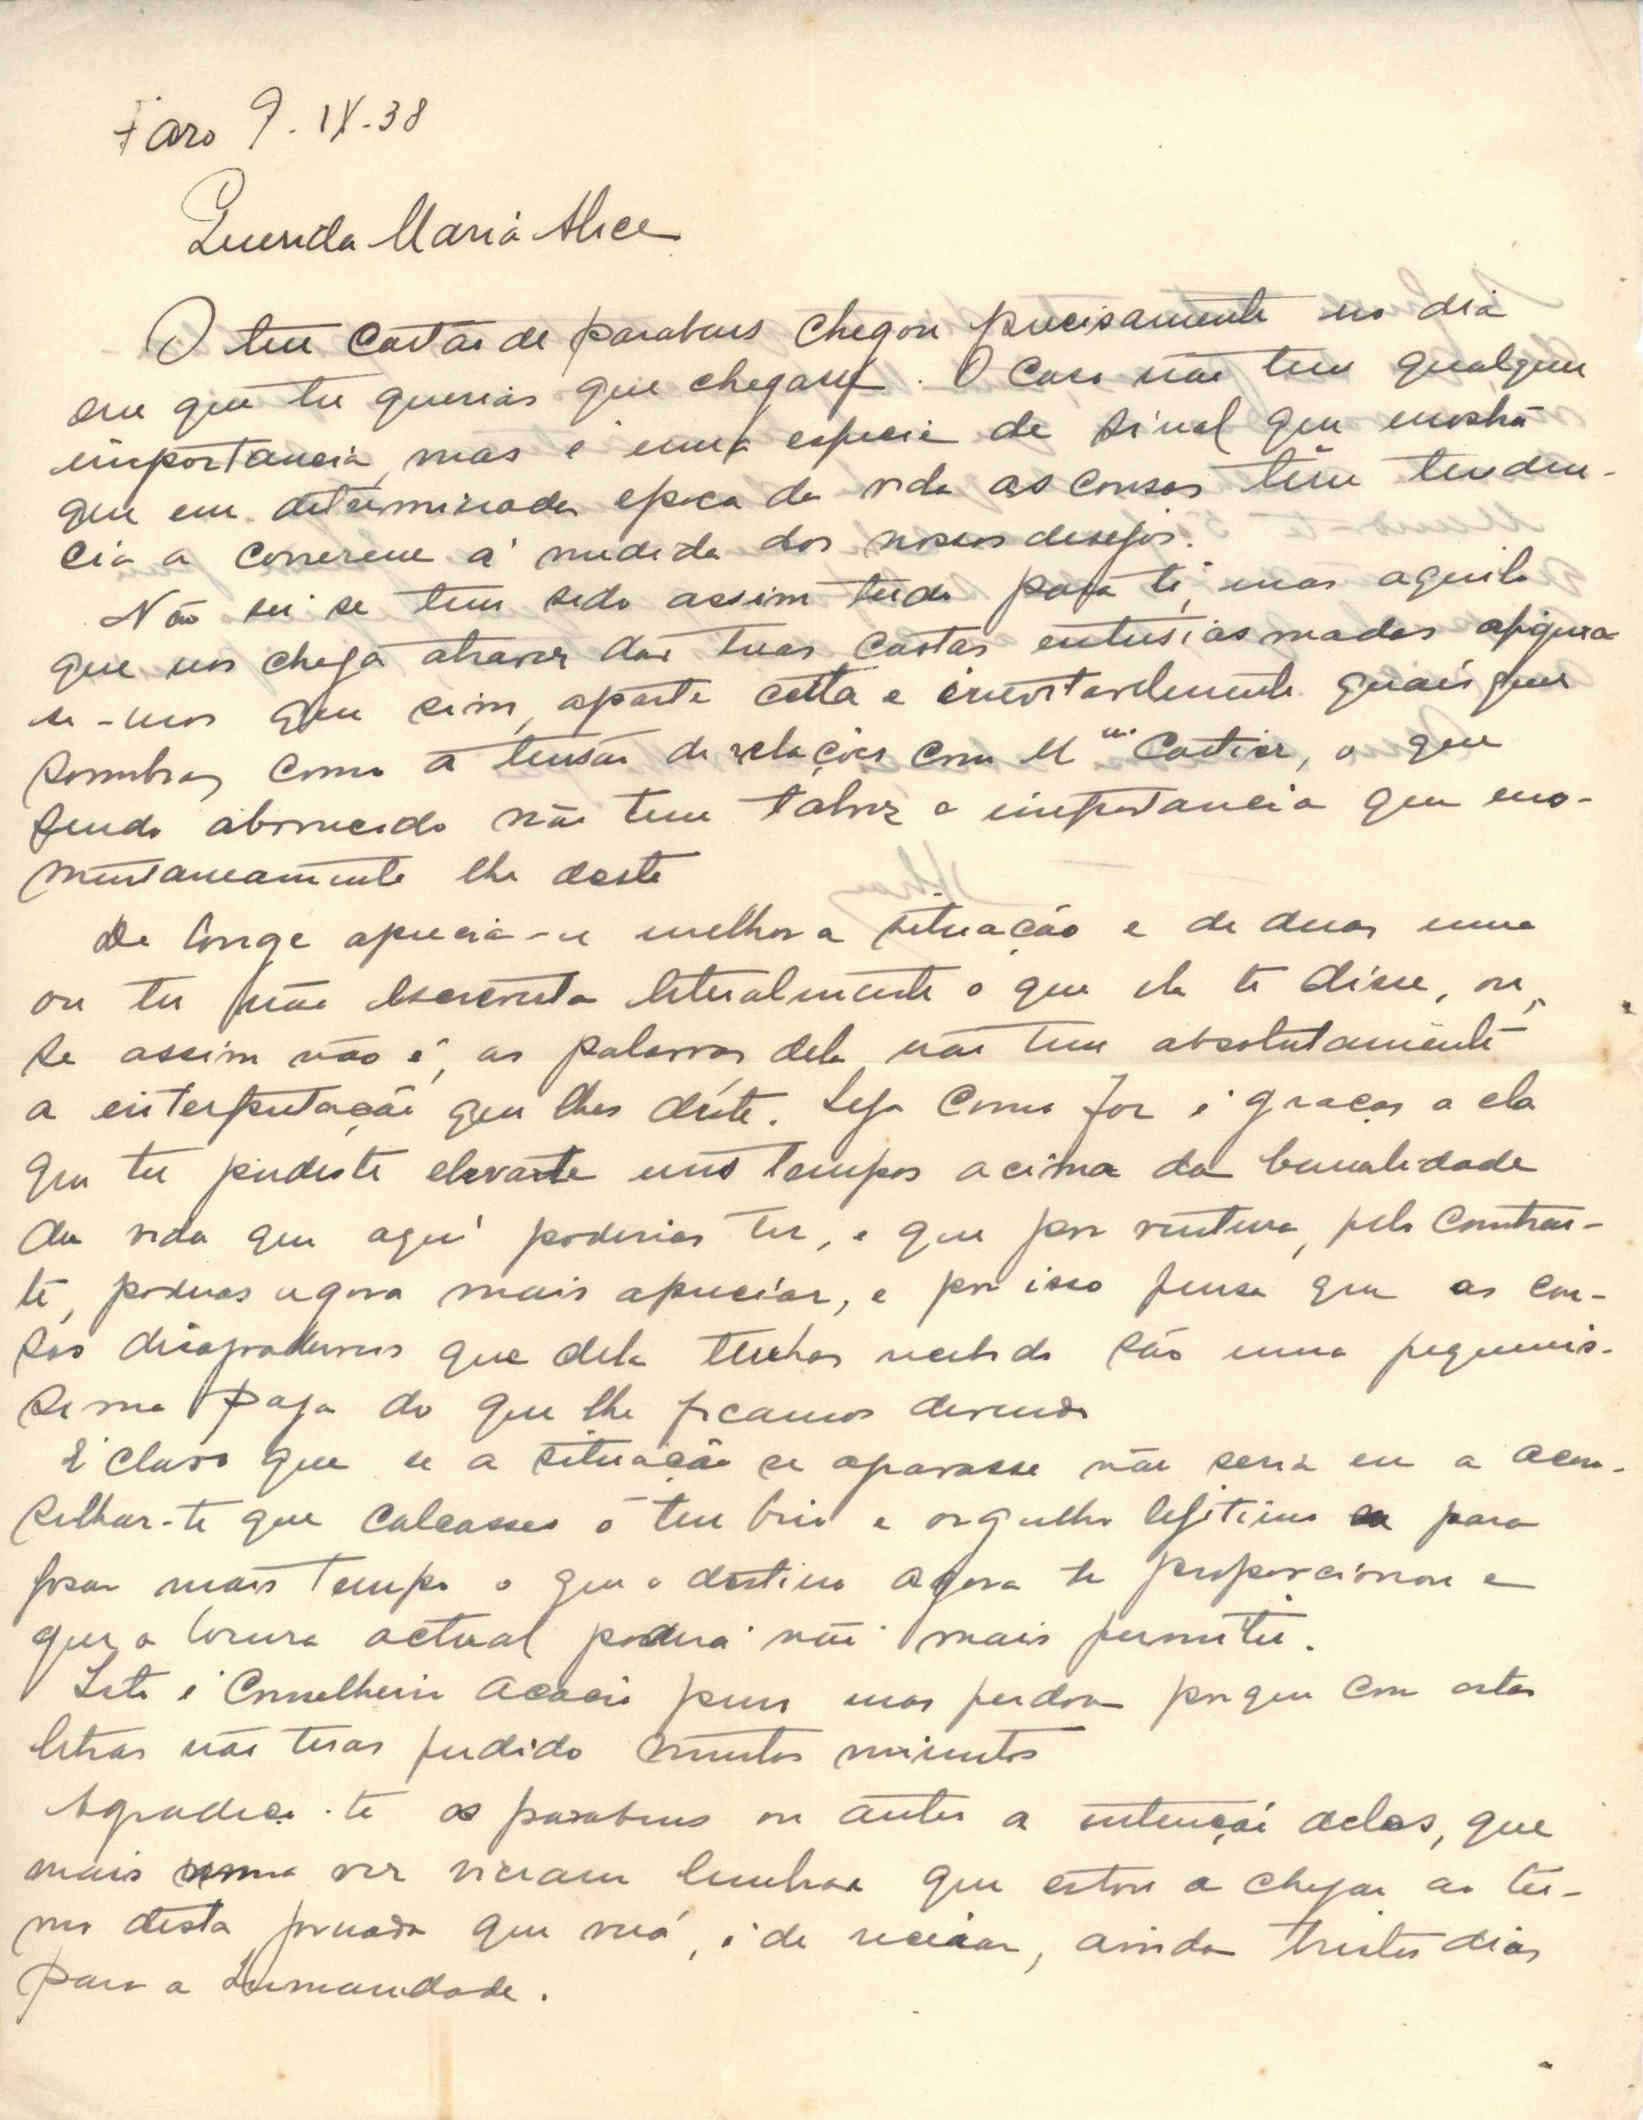 Faro 9.IX.38
Querida Maria Alice
O teu cartão de parabens chegou precisamente no dia
em que tu querias que chegasse. O caso não tem qualquer
importancia, mas é uma especie de sinal que mostra
que em determinada epoca da vida as cousas têm tenden-
cia a correrem á medida dos nossos desejos.
Não sei se tem sido assim tudo para ti, mas aquilo
que nos chega atravez das tuas cartas entusiasmadas afigura-
se-nos que sim, aparte certa e inevitavelmente quaisquer
sombras como a tensão de relações com M.me Cartier, o que
sendo aborrecido não tem talvez a importancia que mo-
mentaneamente lhe deste
De longe aprecia-se melhor a situação e de duas uma
ou tu não escreveste literalmente o que ela te disse, ou,
se assim não é, as palavras dela não tem absolutamente
a interpretação que lhes déste. Seja como fôr é graças a ela
que tu pudeste elevarte uns tempos acima da banalidade
da vida que aqui poderias ter, e que por ventura, pelo contras-
te, poderás agora mais apreciar, e por isso pensa que as cou-
sas desagradaveis que dela tenhas recebido são uma pequenis-
sima paga do que lhe ficamos devendo
É claro que se a situação se agravasse não seria eu a acon-
selhar-te que calcasses o teu brio e orgulho legitimo para
gosar mais tempo o que o destino agora te proporcionou e
que a loucura actual poderá não mais permitir.
Isto é Conselheiro Acacio puro mas perdoa porque com estas
letras não teras perdido muitos minutos
Agradeço-te os parabens ou antes a intenção deles, que
mais uma vez vieram lembrar que estou a chegar ao ter-
mo desta jornada que verá, é de recear, ainda tristes dias
para a humanidade.